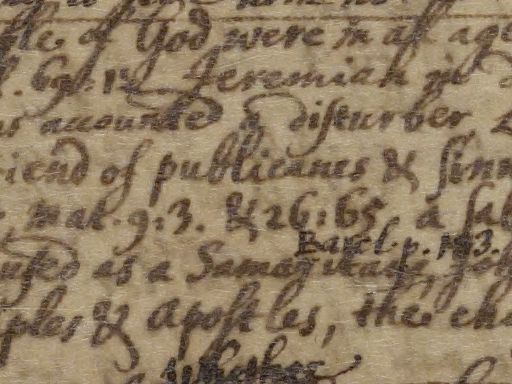 of God were in al age
. 69: 12 Jeremiah in
accounted a disturber
riend of publicanes & sinn
mat. 9: 3. & 26: 65 a sab
Barcl. p. 193.
as a Samaritan, Joh
ples & Apostles, the cha
whether